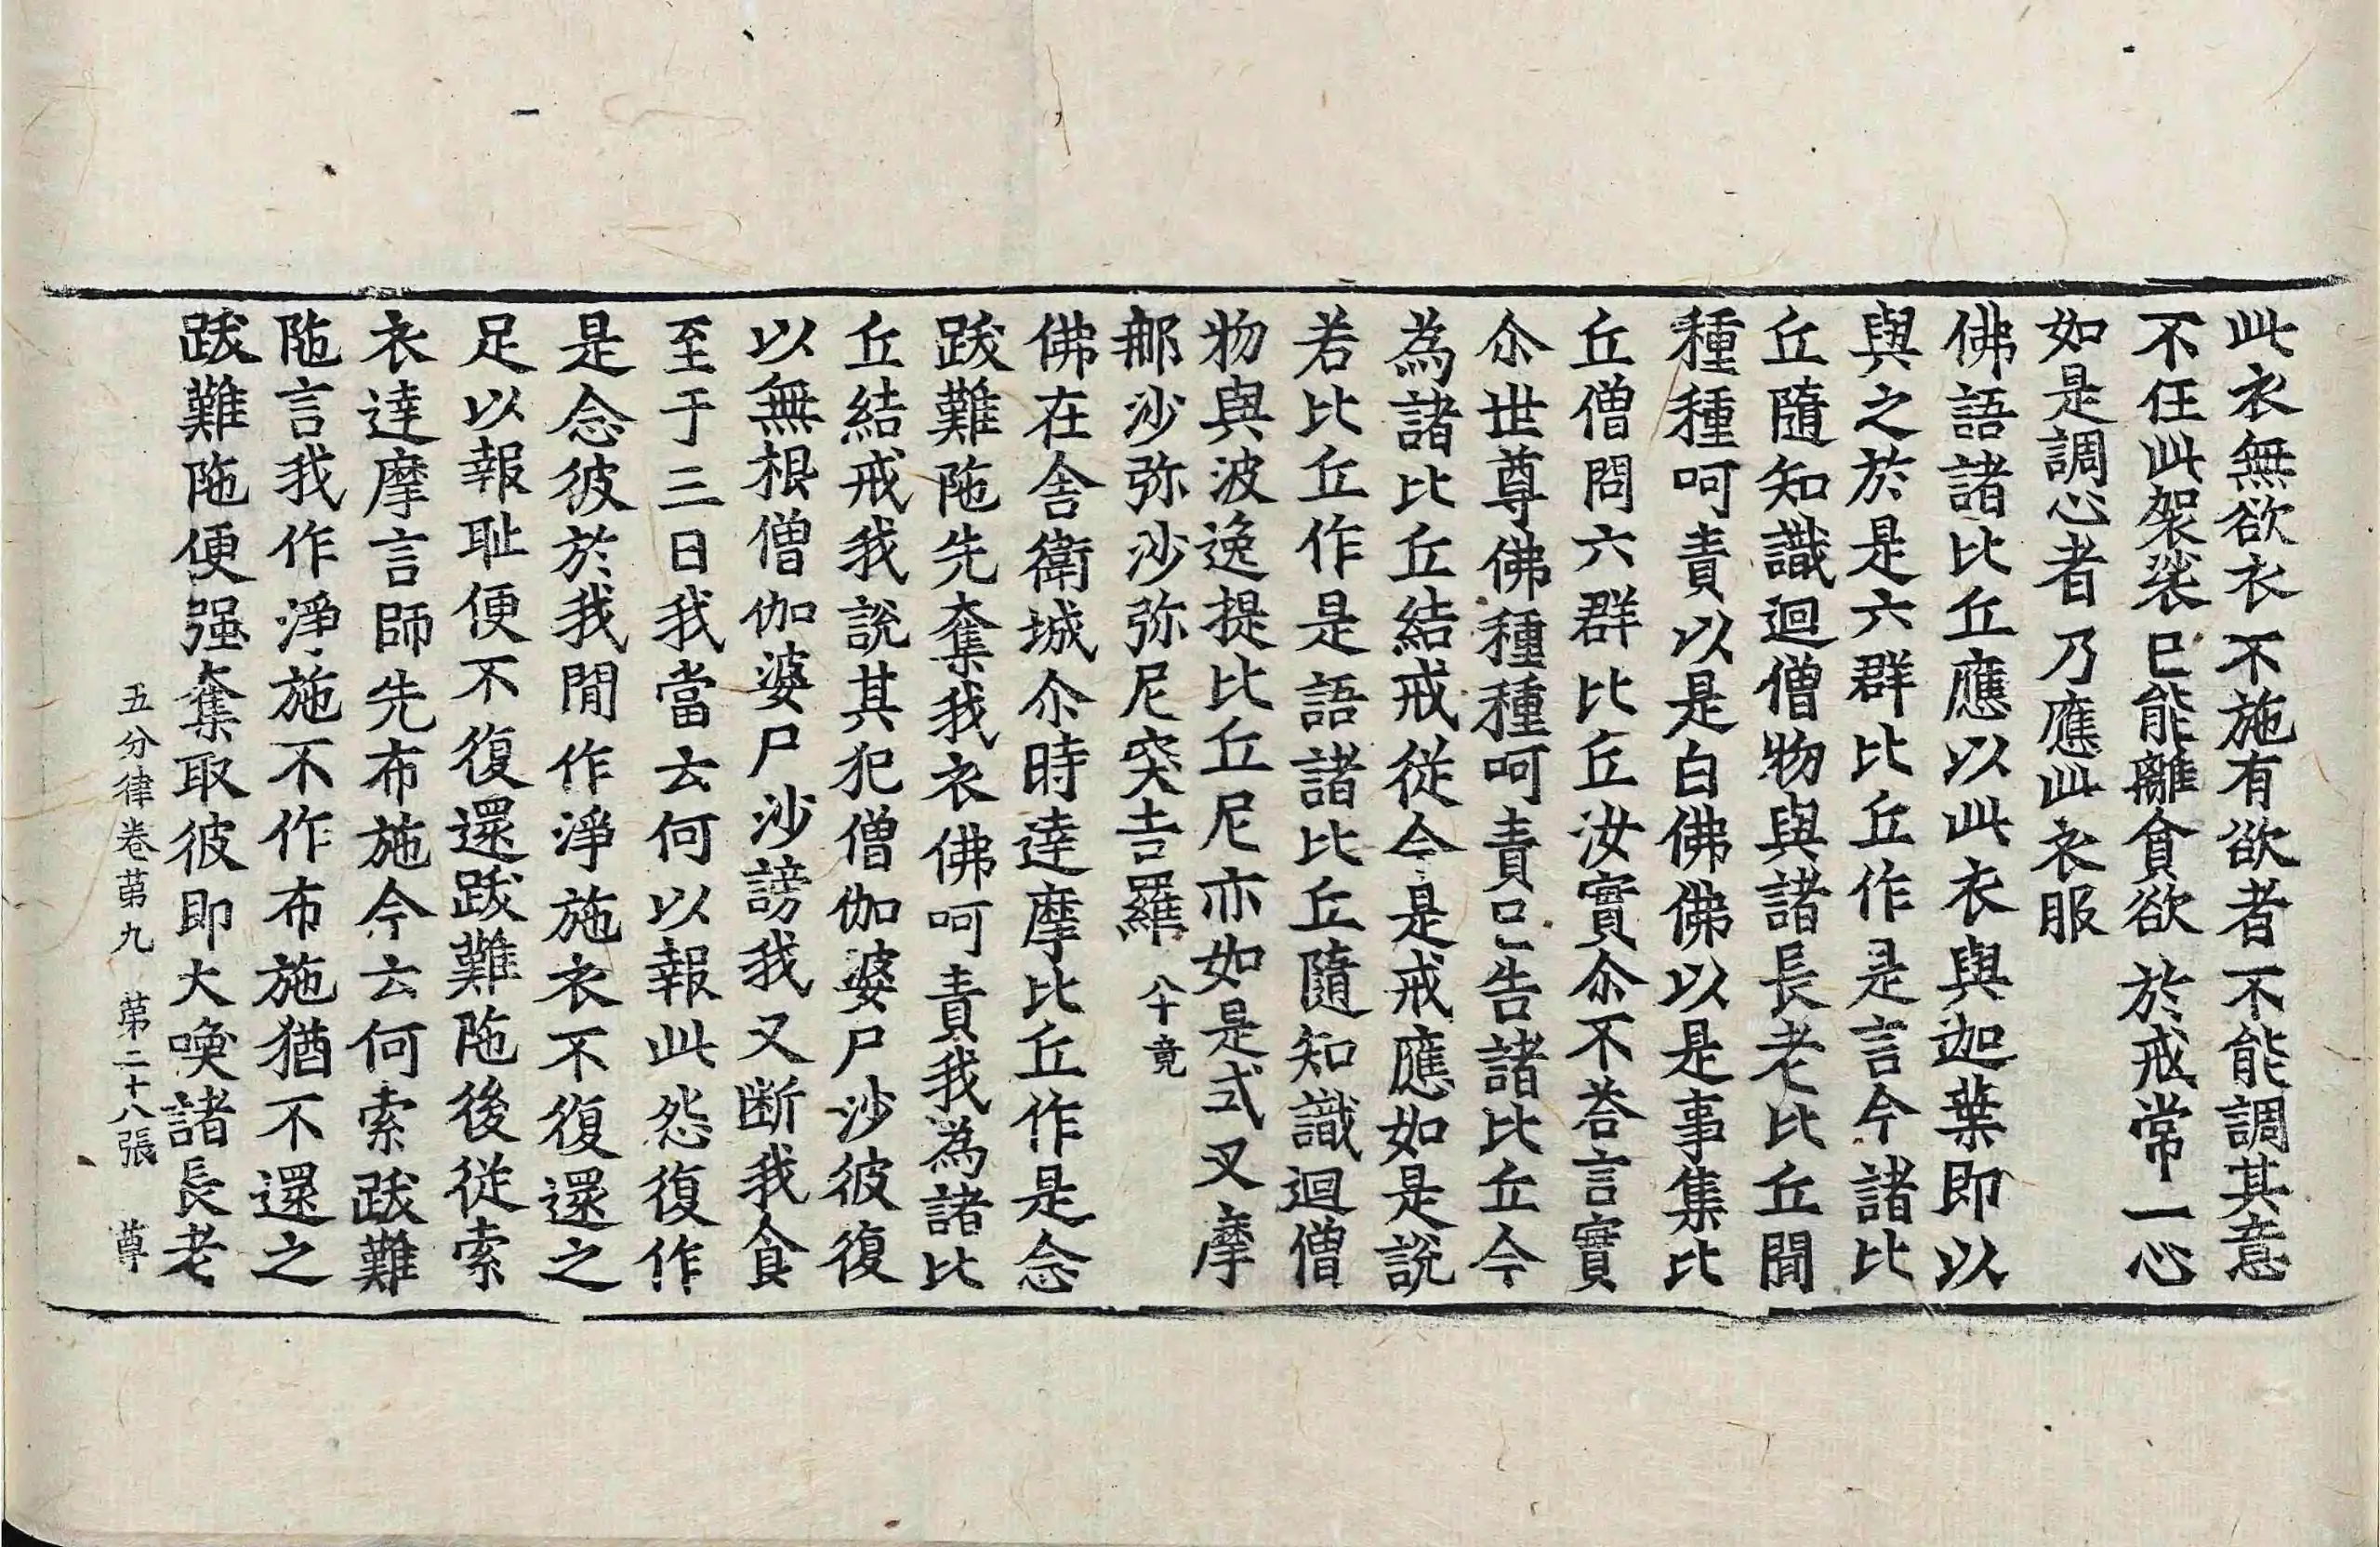 此衣無欲衣不施有欲者不能調其意
不任此袈裟已能離貪欲於戒常一心
如是調心者乃應此衣服
佛語諸比丘應以此衣與迦葉即以
與之於是六群比丘作是言今諸比
丘隨知識迴僧物與諸長老比丘聞
種種呵責以是白佛佛以是事集比
丘僧問六群比丘汝實尒不荅言實
尒世尊佛種種呵責已告諸比丘今
為諸比丘結戒從今是戒應如是說
若比丘作是語諸比丘隨知識迴僧
物與波逸提比丘尼亦如是式叉摩
那沙弥沙弥尼突吉羅 八十竟
佛在舎衛城尒時達摩比丘作是念
跋難陁先奪我衣佛呵責我為諸比
丘結戒我說其犯僧伽婆尸沙彼復
以無根僧伽婆尸沙謗我又断我食
至于三日我當云何以報此怨復作
是念彼於我間作淨施衣不復還之
足以報耻便不復還跋難陁後從索
衣達摩言師先布施今云何索跋難
陁言我作淨施不作布施猶不還之
跋難陁便强奪取彼即大喚諸長老
五分律卷苐九 苐二十八張 尊